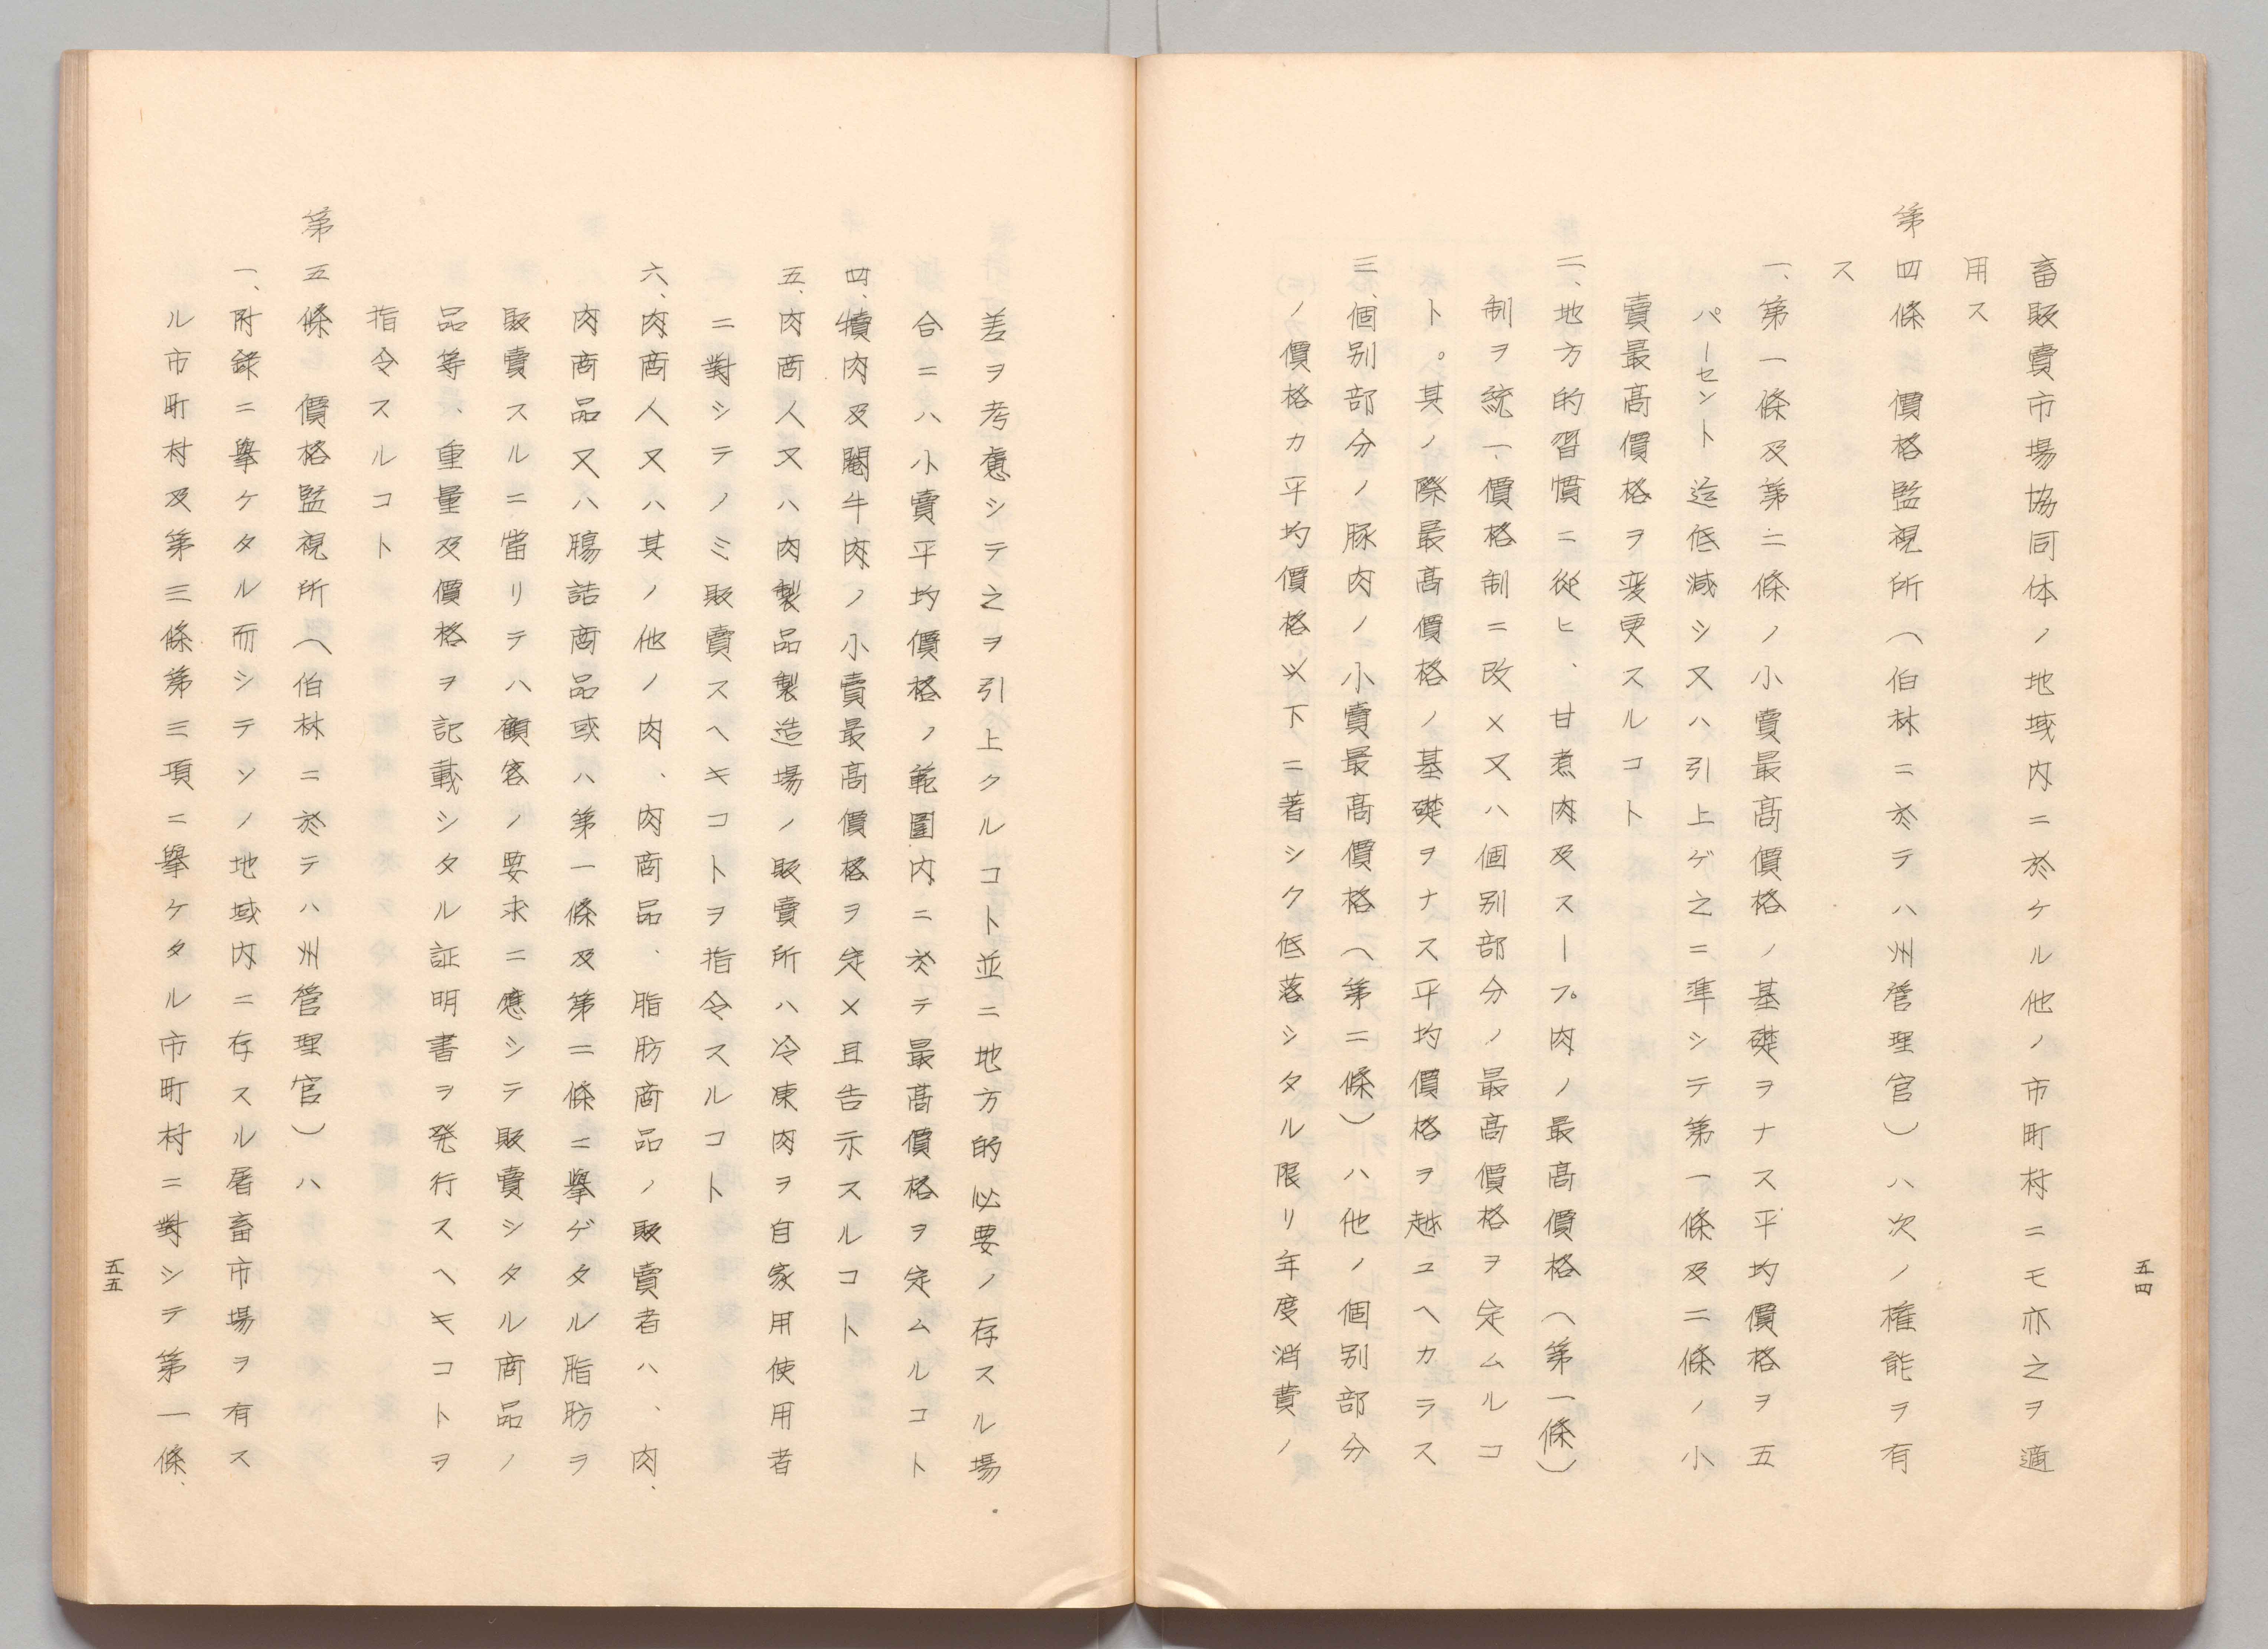 畜販賣市場協同体ノ地域内ニ於ケル他ノ市町村ニモ亦之ヲ適
用ス
第四條　價格監視所（伯林ニ於テハ州管理官）ハ次ノ権能ヲ有
ス
一、第一條及第二條ノ小賣最高價格ノ基礎ヲナス平均價格ヲ五
パーセント迄低減シ又ハ引上ゲ之ニ準シテ第一條及二條ノ小
賣最高價格ヲ変更スルコト
二、地方的習慣ニ從ヒ、甘煮肉及スープ肉ノ最高價格（第一條）
制ヲ統一價格制ニ改メ又ハ個別部分ノ最高價格ヲ定ムルコ
ト。其ノ際最高價格ノ基礎ヲナス平均價格ヲ越ユヘカラス
三、個別部分ノ豚肉ノ小賣最高價格（第二條）ハ他ノ個別部分
ノ價格カ平均價格以下ニ著シク低落シタル限リ年度消費ノ
五四
差ヲ考慮シテ之ヲ引上クルコト並ニ地方的必要ノ存スル場
合ニハ小賣平均價格ノ範圍内ニ於テ最高價格ヲ定ムルコト
四、犢肉及閹牛肉ノ小賣最高價格ヲ定メ且告示スルコト
五、肉商人又ハ肉製品製造場ノ販賣所ハ冷凍肉ヲ自家用使用者
ニ對シテノミ販賣スヘキコトヲ指令スルコト
六、肉商人又ハ其ノ他ノ肉、肉商品、脂肪商品ノ販賣者ハ、肉、
肉商品又ハ腸詰商品或ハ第一條及第二條ニ擧ゲタル脂肪ヲ
販賣スルニ當リテハ顧客ノ要求ニ應シテ販賣シタル商品ノ
品等、重量及價格ヲ記載シタル証明書ヲ発行スヘキコトヲ
指令スルコト
第五條　價格監視所（伯林ニ於テハ州管理官）ハ
一、附録ニ擧ケタル而シテソノ地域内ニ存スル屠畜市場ヲ有ス
ル市町村及第三條第三項ニ擧ケタル市町村ニ對シテ第一條、
五五